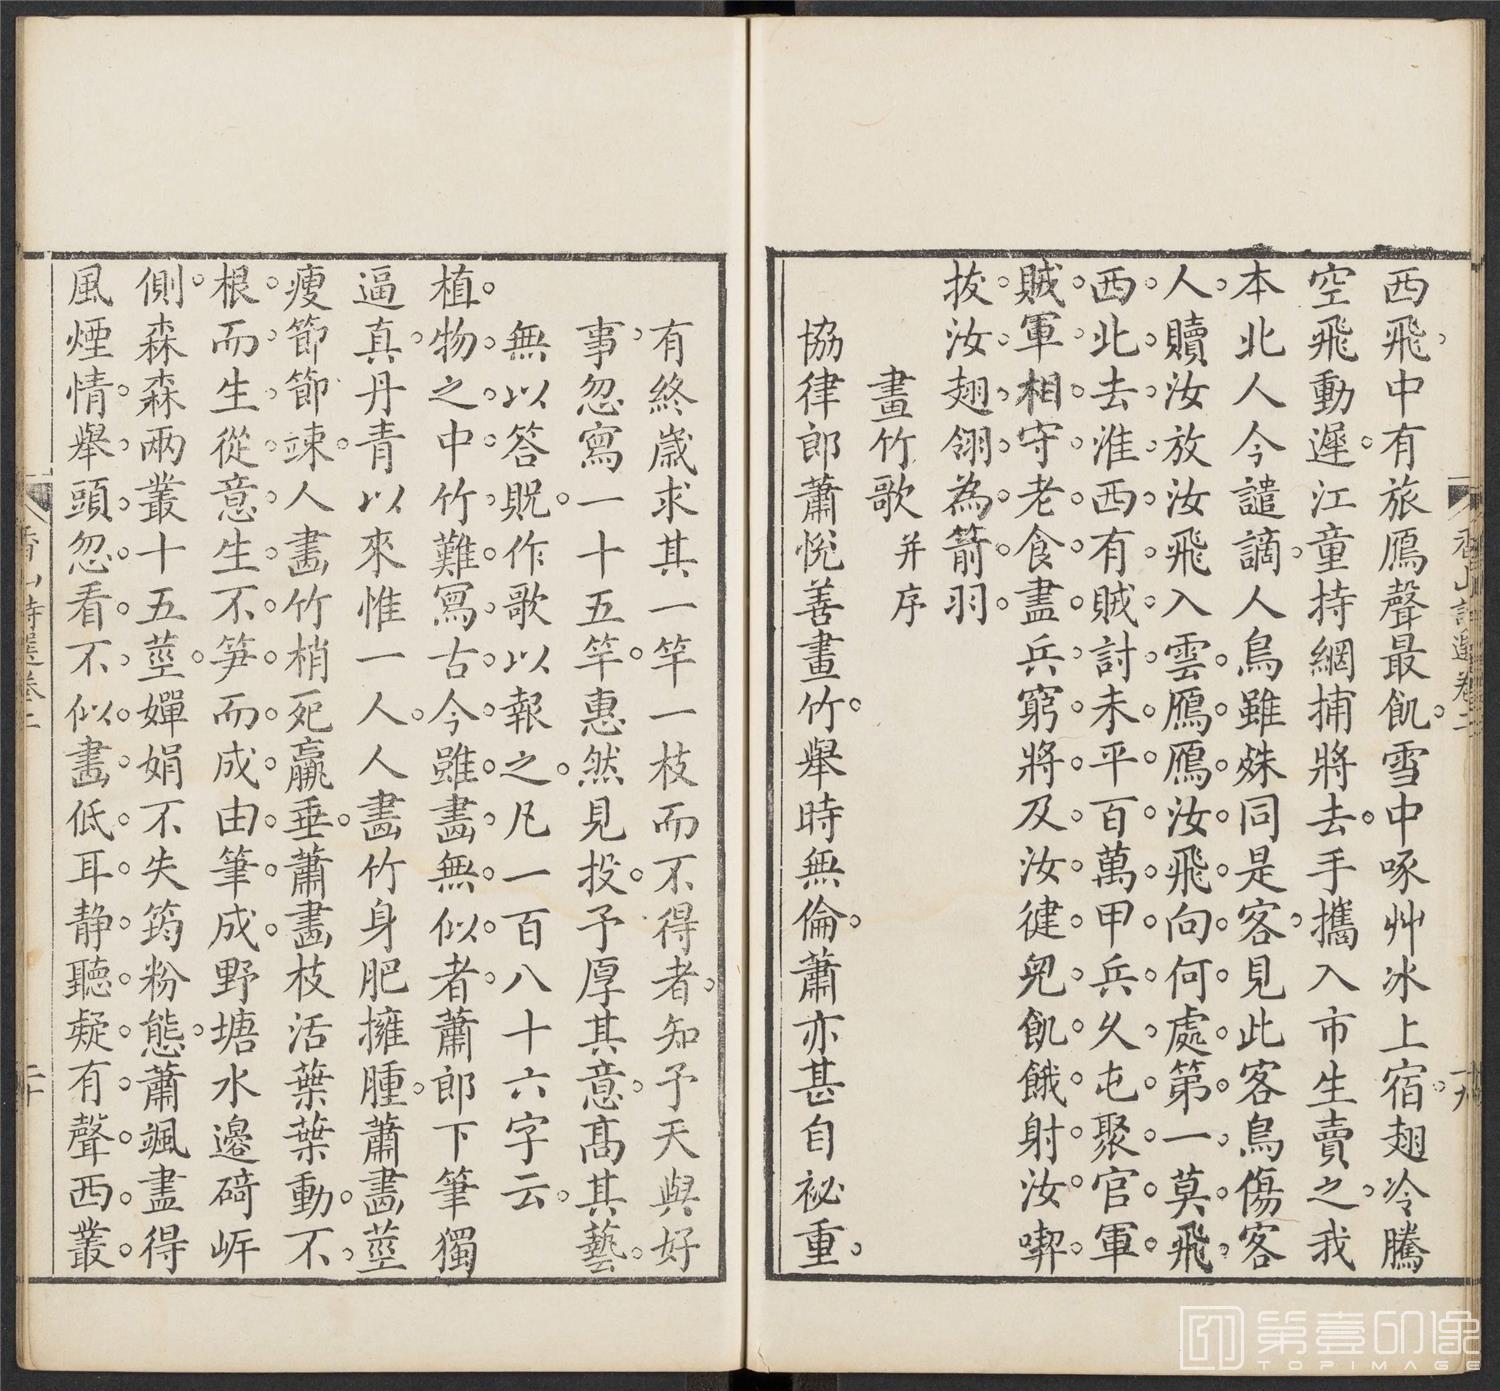 西飛中有旅鴈聲最飢雪中啄艸冰上宿翅冷騰
空飛動遲江童持網捕將去手攜入市生賣之我
本北人今譴謫人鳥雖殊同是客見此客鳥傷客
人贖汝放汝飛入雲鴈鴈汝飛向何處第一莫飛
西北去淮西有賊討未平百萬甲兵久屯聚官軍
賊軍相守老食盡兵窮將及汝健兒飢餓射汝喫
拔汝翅翎為箭羽
畫竹歌 并序
協律郎蕭悅善畫竹舉時無倫蕭亦甚自祕重
有終歲求其一竿一枝而不得者知予天與好
事忽寫一十五竿惠然見投予厚其意髙其藝
無以答貺作歌以報之凡一百八十六字云
植物之中竹難寫古今雖畫無似者蕭郎下筆獨
逼真丹青以來惟一人人畫竹身肥擁腫蕭畫莖
瘦節節竦人畫竹梢死羸垂蕭畫枝活葉葉動不
根而生從意生不笋而成由筆成野塘水邊碕岸
側森森兩叢十五莖嬋娟不失筠粉態蕭颯盡得
風煙情舉頭忽看不似畫低耳静聽疑有聲西叢
香山詩選卷二
十九
香山詩選卷二
二十
第壹印像
TOPIMAGE